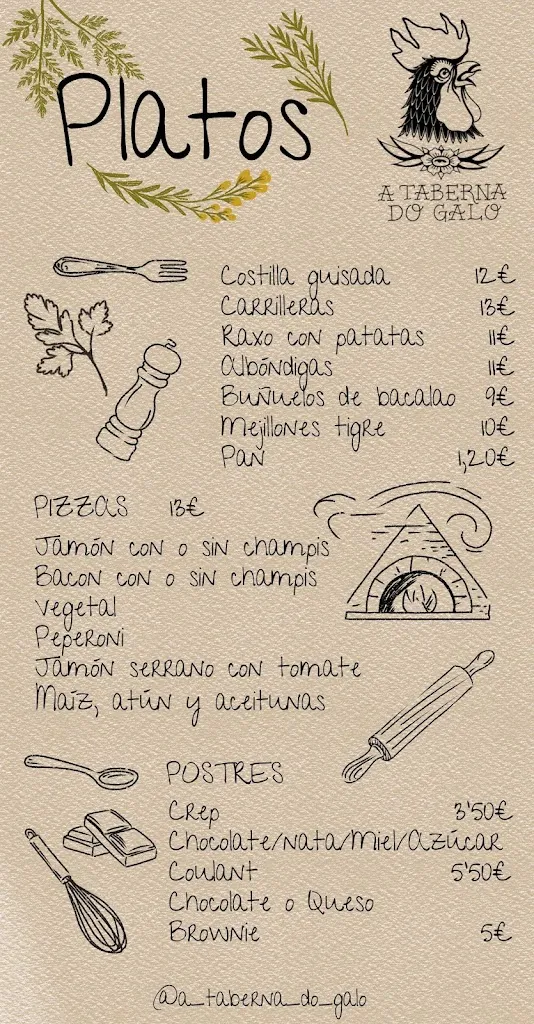 Platos
A TABERNA
DO GALO
Costilla guisada 12€
Carrilleras 13€
Raxo con patatas 11€
Albóndigas 11€
Buñuelos de bacalao 9€
Mejillones tigre 10€
Pan 1,20€
PIZZAS 13€
Jamón con o sin champis
Bacon con o sin champis
Vegetal
Peperoni
Jamón serrano con tomate
Maíz, atún y aceitunas
POSTRES
Crep 3'50€
Chocolate/Nata/Miel/Azúcar
Coulant 5'50€
Chocolate o Queso
Brownie 5€
@a_taberna_do_galo